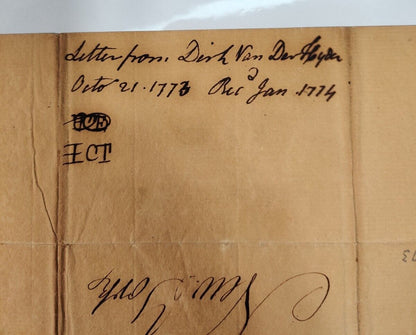 Letter from Dirk Van Der Hyder
Octo 21. 1773 Rec'd Jan. 1774
ICT
New York
73